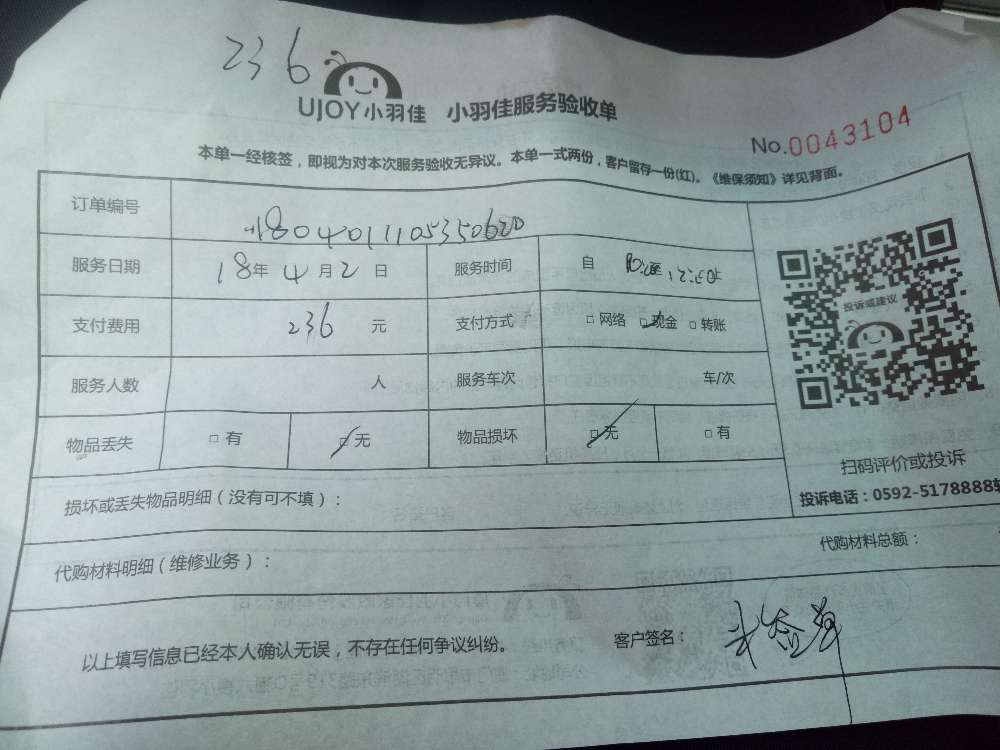 236
UJOY小羽佳 小羽佳服务验收单
No.0043104
本单一经核签，即视为对本次服务验收无异议。本单一式两份，客户留存一份(红)。《维保须知》详见背面。
订单编号
服务日期 18年4月2日 服务时间 自
支付费用 236元 支付方式 □网络 □现金 □转账
服务人数 人 服务车次 车/次
物品丢失 □有 □无 物品损坏 □无 □有
投诉或建议
扫码评价或投诉
投诉电话：0592-5178888转
损坏或丢失物品明细（没有可不填）：
代购材料明细（维修业务）： 代购材料总额：
以上填写信息已经本人确认无误，不存在任何争议纠纷。 客户签名：